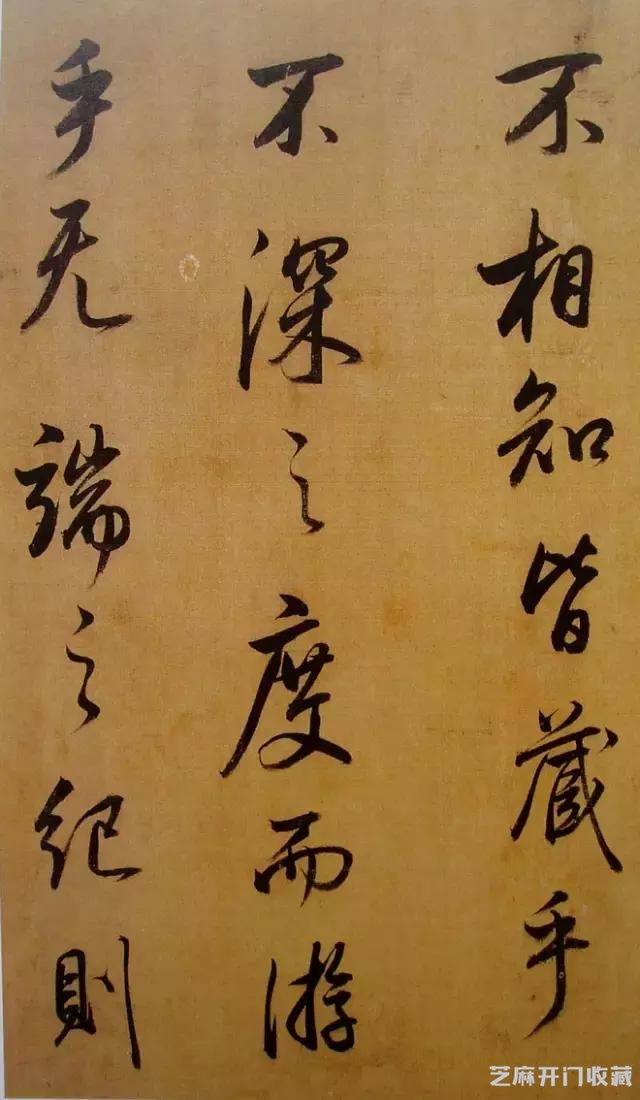 不相知皆藏乎
不深之度而游
乎无端之纪则
芝麻开门收藏